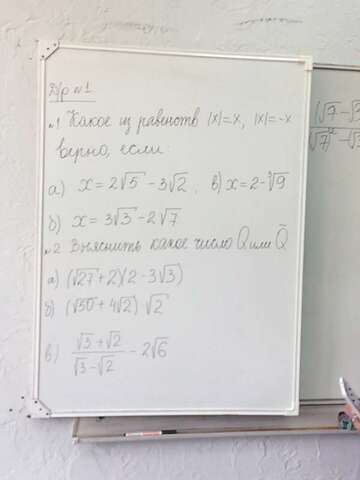 Д/р №1
№1 Какое из равенств |x|=x, |x|=-x
верно, если:
а) x = 2√5 - 3√2, в) x = 2-∛9
б) x = 3√3 - 2√7
№2 Выяснить какое число Q или Q̄
а) (√27 + 2)(2 - 3√3)
б) (√50 + 4√2) √2
в) (√3 + √2)/(√3 - √2) - 2√6